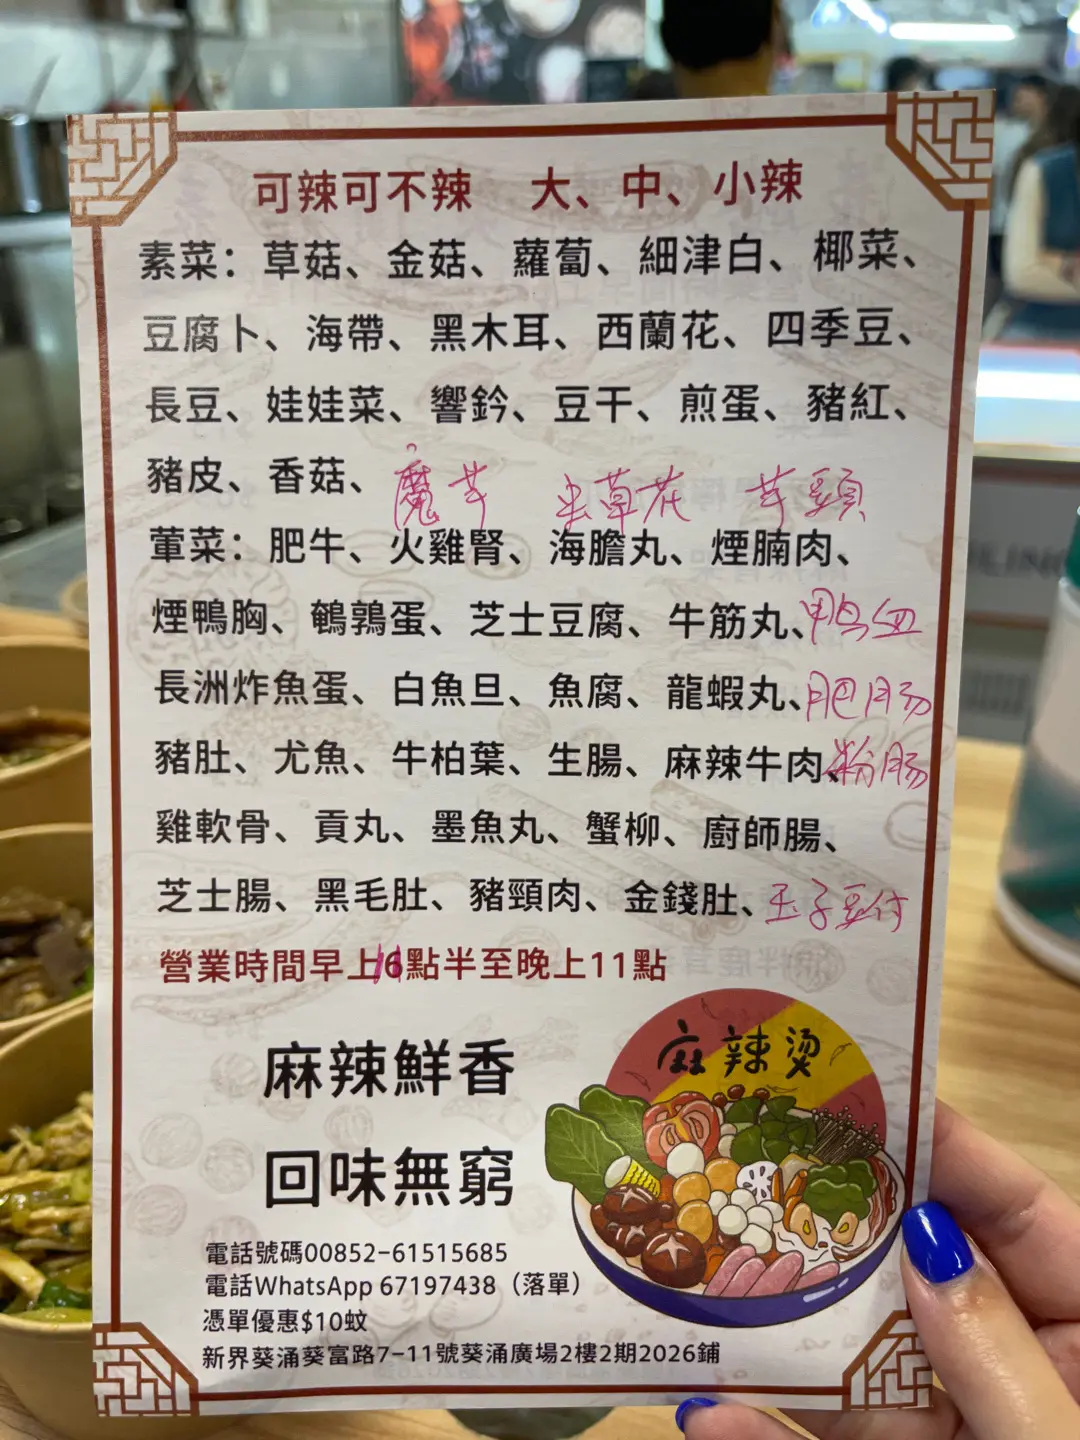 可辣可不辣 大、中、小辣
素菜：草菇、金菇、蘿蔔、細津白、椰菜、
豆腐卜、海帶、黑木耳、西蘭花、四季豆、
長豆、娃娃菜、響鈴、豆干、煎蛋、豬紅、
豬皮、香菇、魔芋 虫草花 芋頭
葷菜：肥牛、火雞腎、海膽丸、煙腩肉、
煙鴨胸、鵪鶉蛋、芝士豆腐、牛筋丸、鸭血
長洲炸魚蛋、白魚旦、魚腐、龍蝦丸、肥肠
豬肚、尤魚、牛柏葉、生腸、麻辣牛肉、粉肠
雞軟骨、貢丸、墨魚丸、蟹柳、廚師腸、
芝士腸、黑毛肚、豬頸肉、金錢肚、玉子豆付
營業時間早上11點半至晚上11點
麻辣鮮香
回味無窮
麻辣烫
電話號碼00852-61515685
電話WhatsApp 67197438（落單）
憑單優惠$10蚊
新界葵涌葵富路7-11號葵涌廣場2樓2期2026鋪